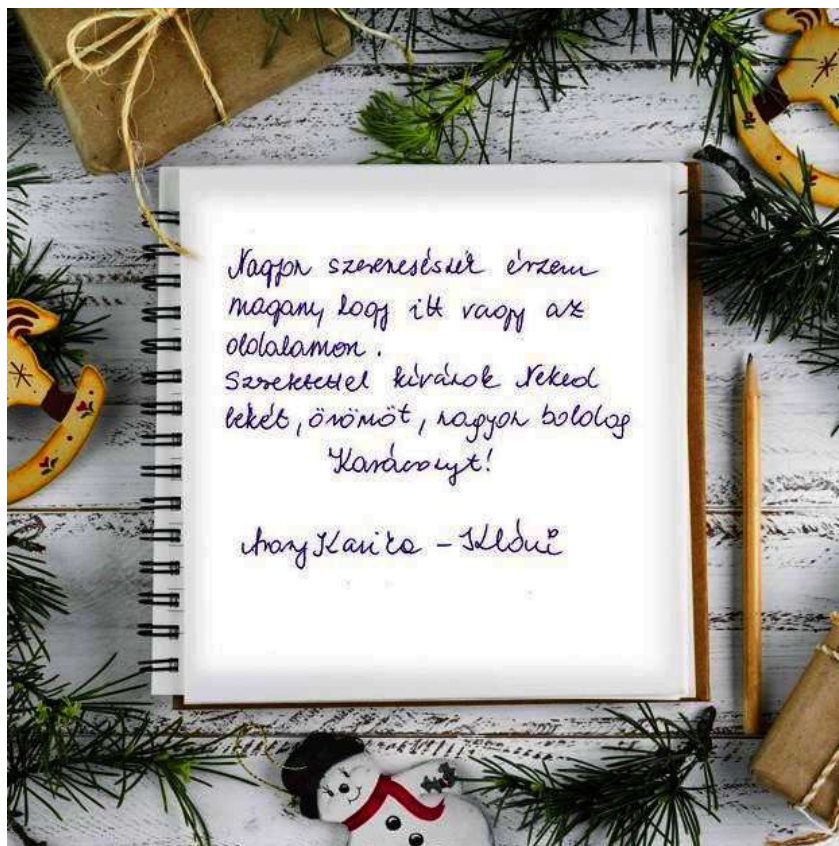 Nagyon szerencsésnek érzem
magam, hogy itt vagy az
oldalamon.
Szeretettel kívánok Neked
békét, örömöt, nagyon boldog
Karácsonyt!
Arany Karika - Klóni